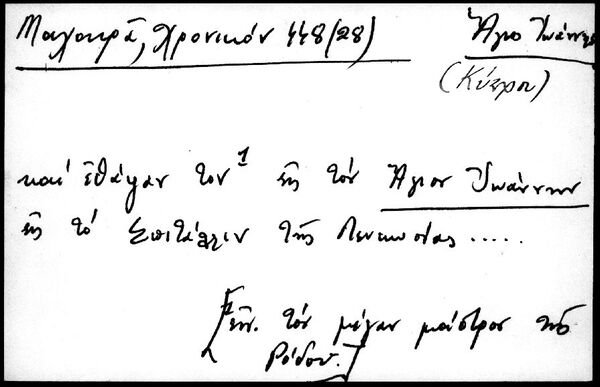 Μαχαιρᾶ, Χρονικόν 448(28) Ἅγιο Ἰωάννη
(Κύπρου)
καὶ ἐθάψαν τον¹ εἰς τὸν Ἅγιον Ἰωάννην
εἰς τὸ Σπιτάλιν τῆς Λευκωσίας .....
[ἐν. τὸν μέγαν μάστρον τῆς
Ρόδου.]